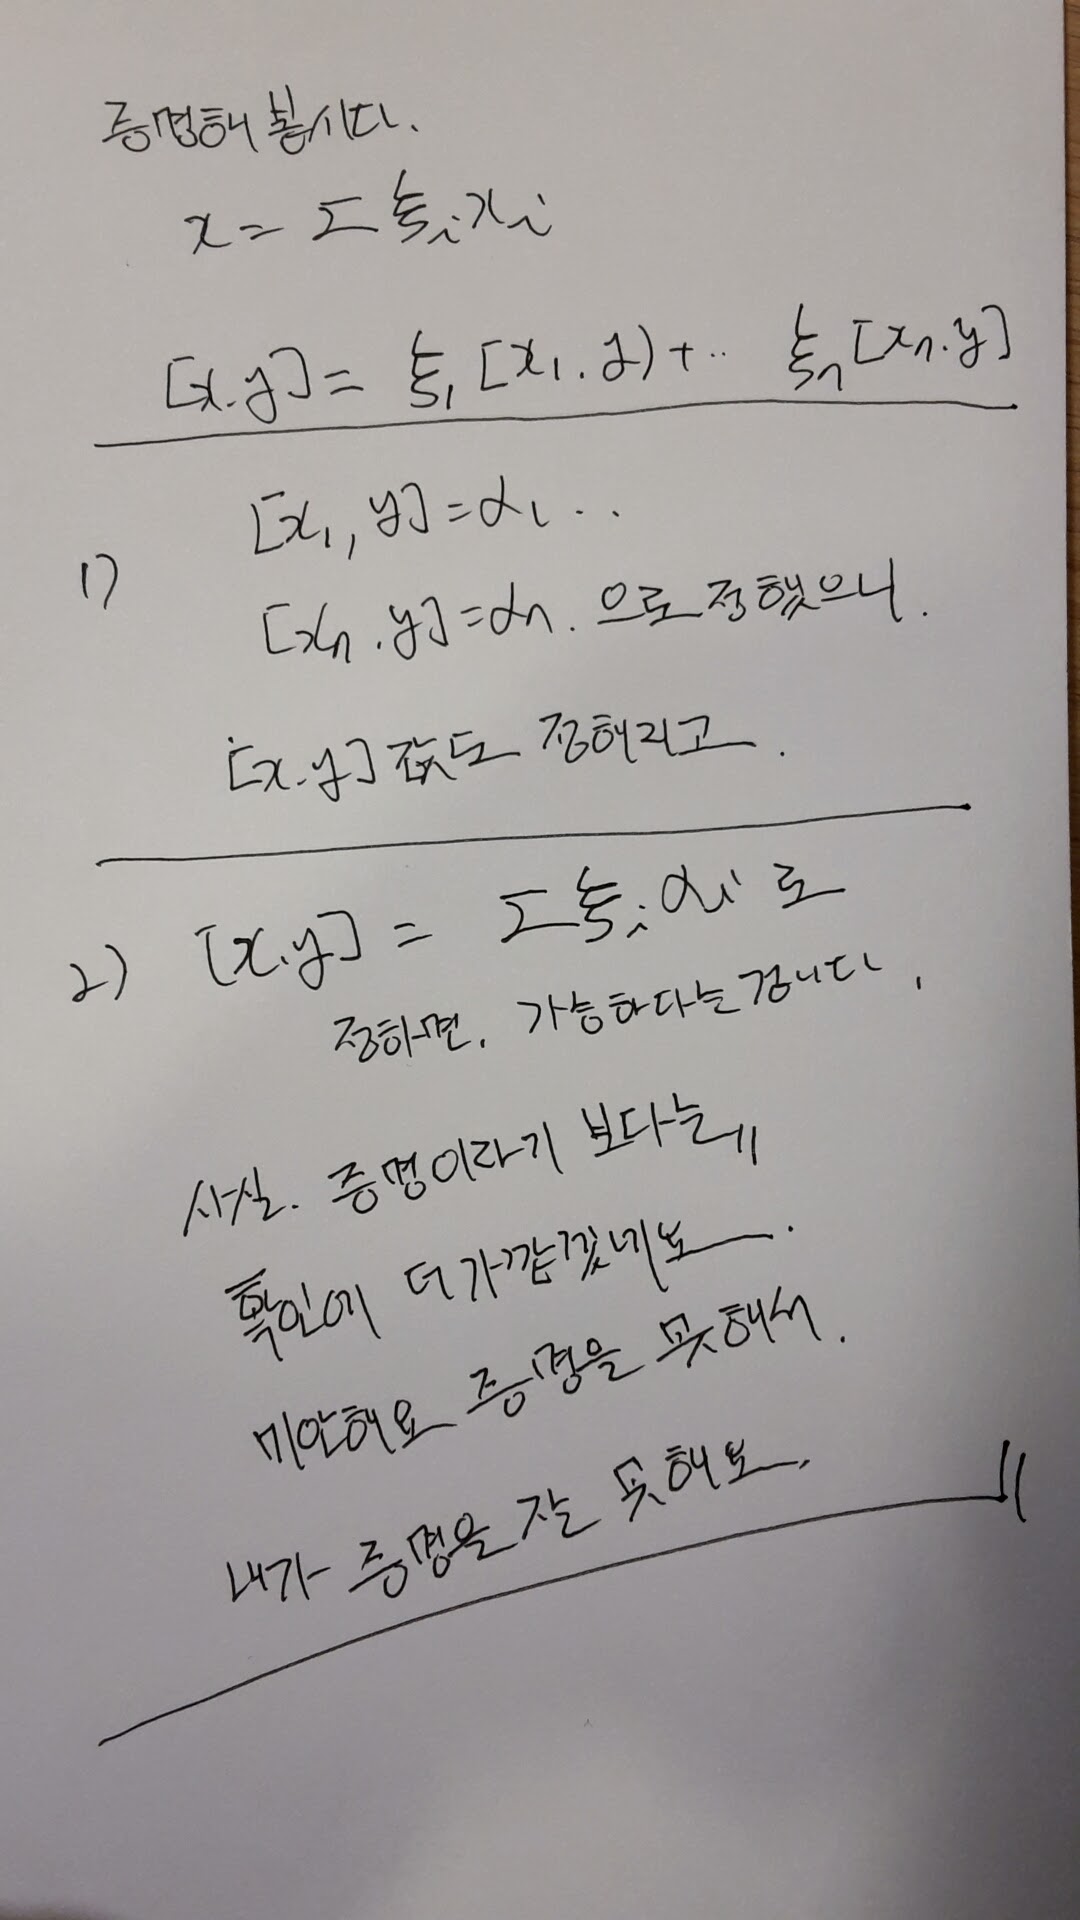 증명해 봅시다.
x = Σξᵢxᵢ
[x.y] = ξ₁[x₁.y)+‥ ξₙ[xₙ.y]
[x₁,y] = α₁‥
1) [xₙ.y] = αₙ. 으로 정했으니.
[x.y] 값도 정해지고.
2) [x.y] = Σξᵢαᵢ 로
정하면, 가능하다는겁니다.
사실. 증명이라기 보다는,,
확인에 더 가깝겠네요.
미안해요 증명을 못해서.
내가 증명을 잘 못해요.